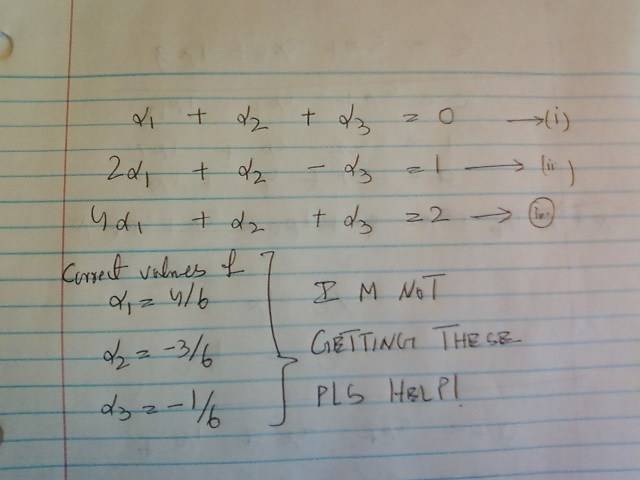 α1 + α2 + α3 = 0 → (i)
2α1 + α2 - α3 = 1 → (ii)
4α1 + α2 + α3 = 2 → (iii)
Correct values of
α1 = 4/6
α2 = -3/6
α3 = -1/6
I M NOT
GETTING THESE
PLS HELP!